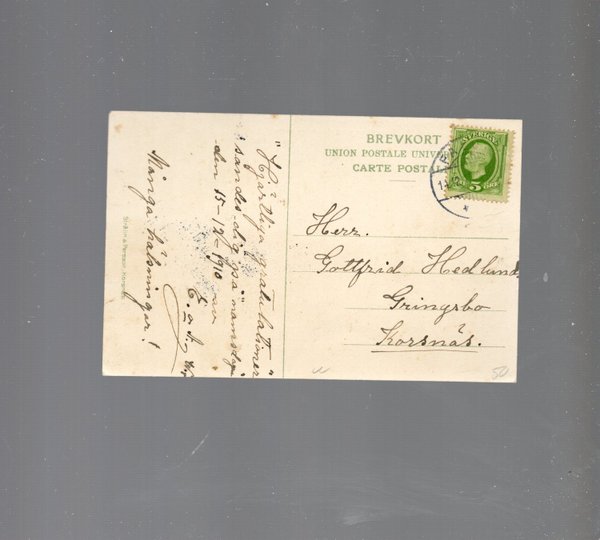 BREVKORT
UNION POSTALE
CARTE POSTALE
SVERIGE
5 ÖRE
Herr.
Gottfrid Hedlund
Gringsbo
Korsnäs.
"Hjärtliga gratulationer"
sändes dig på "namnsdagen
den 15-12-1910 av
Många hälsningar!
50